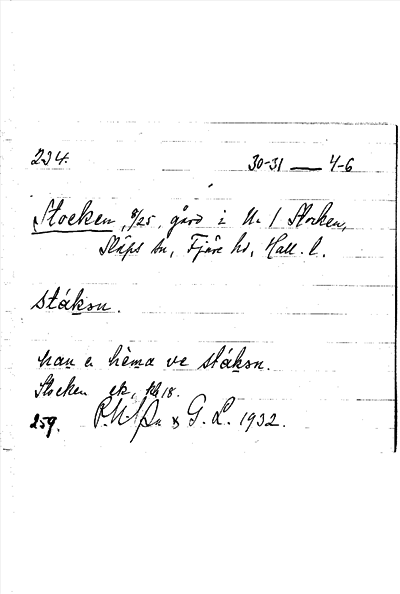 234. 30-31 — 4-6
Stocken, 8/25, gård i N:o 1 Stocken,
Släps sn, Fjäre hd, Hall. l.
stákɔn.
han e hèma ve stákɔn.
Stocken ek,
259. G. L. 1932.